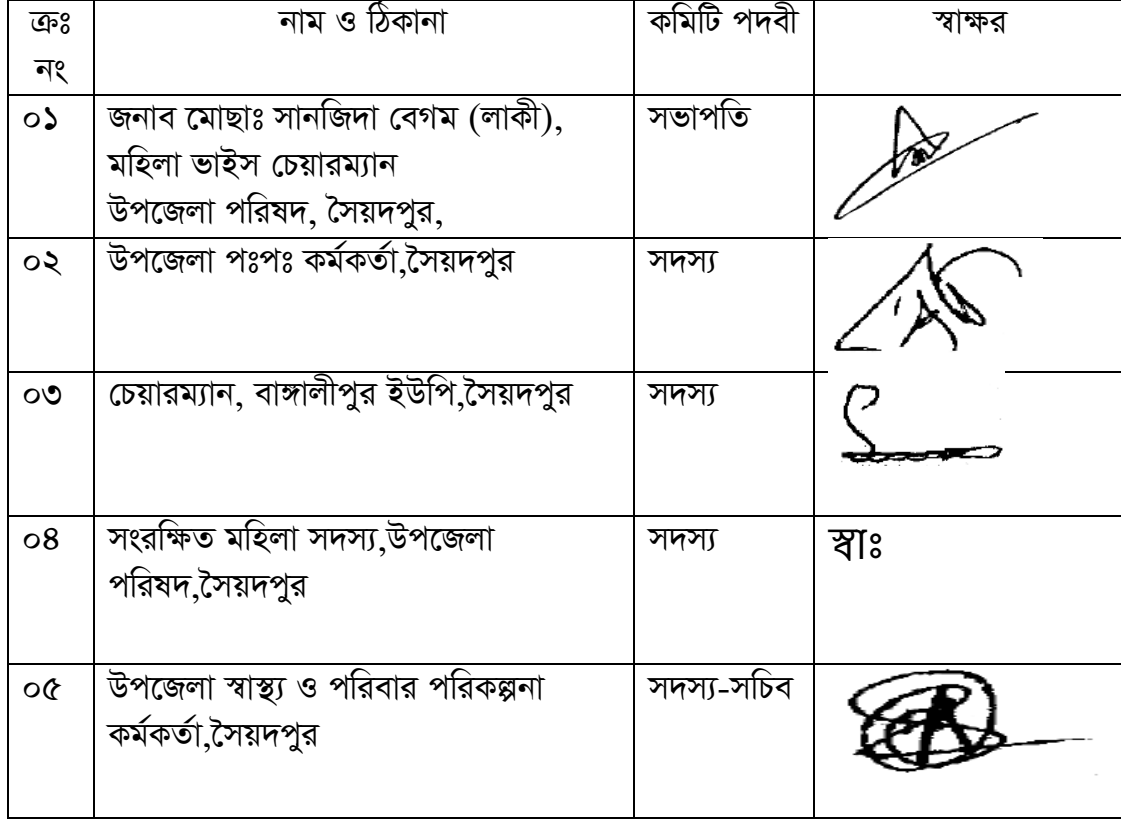 ক্রঃ নং নাম ও ঠিকানা কমিটি পদবী স্বাক্ষর
০১ জনাব মোছাঃ সানজিদা বেগম (লাকী), সভাপতি
মহিলা ভাইস চেয়ারম্যান
উপজেলা পরিষদ, সৈয়দপুর,
০২ উপজেলা পঃপঃ কর্মকর্তা,সৈয়দপুর সদস্য
০৩ চেয়ারম্যান, বাঙ্গালীপুর ইউপি,সৈয়দপুর সদস্য
০৪ সংরক্ষিত মহিলা সদস্য,উপজেলা সদস্য স্বাঃ
পরিষদ,সৈয়দপুর
০৫ উপজেলা স্বাস্থ্য ও পরিবার পরিকল্পনা সদস্য-সচিব
কর্মকর্তা,সৈয়দপুর